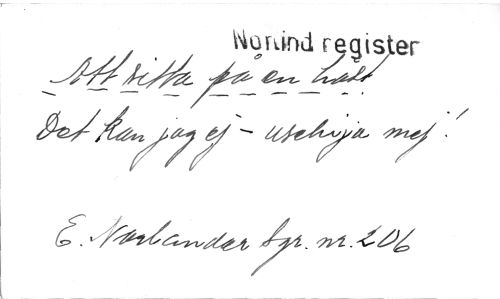 Norlind register
Att sitta på en häst
Det kan jag ej - uschija mej!
E. Norlander Sgr. nr. 206